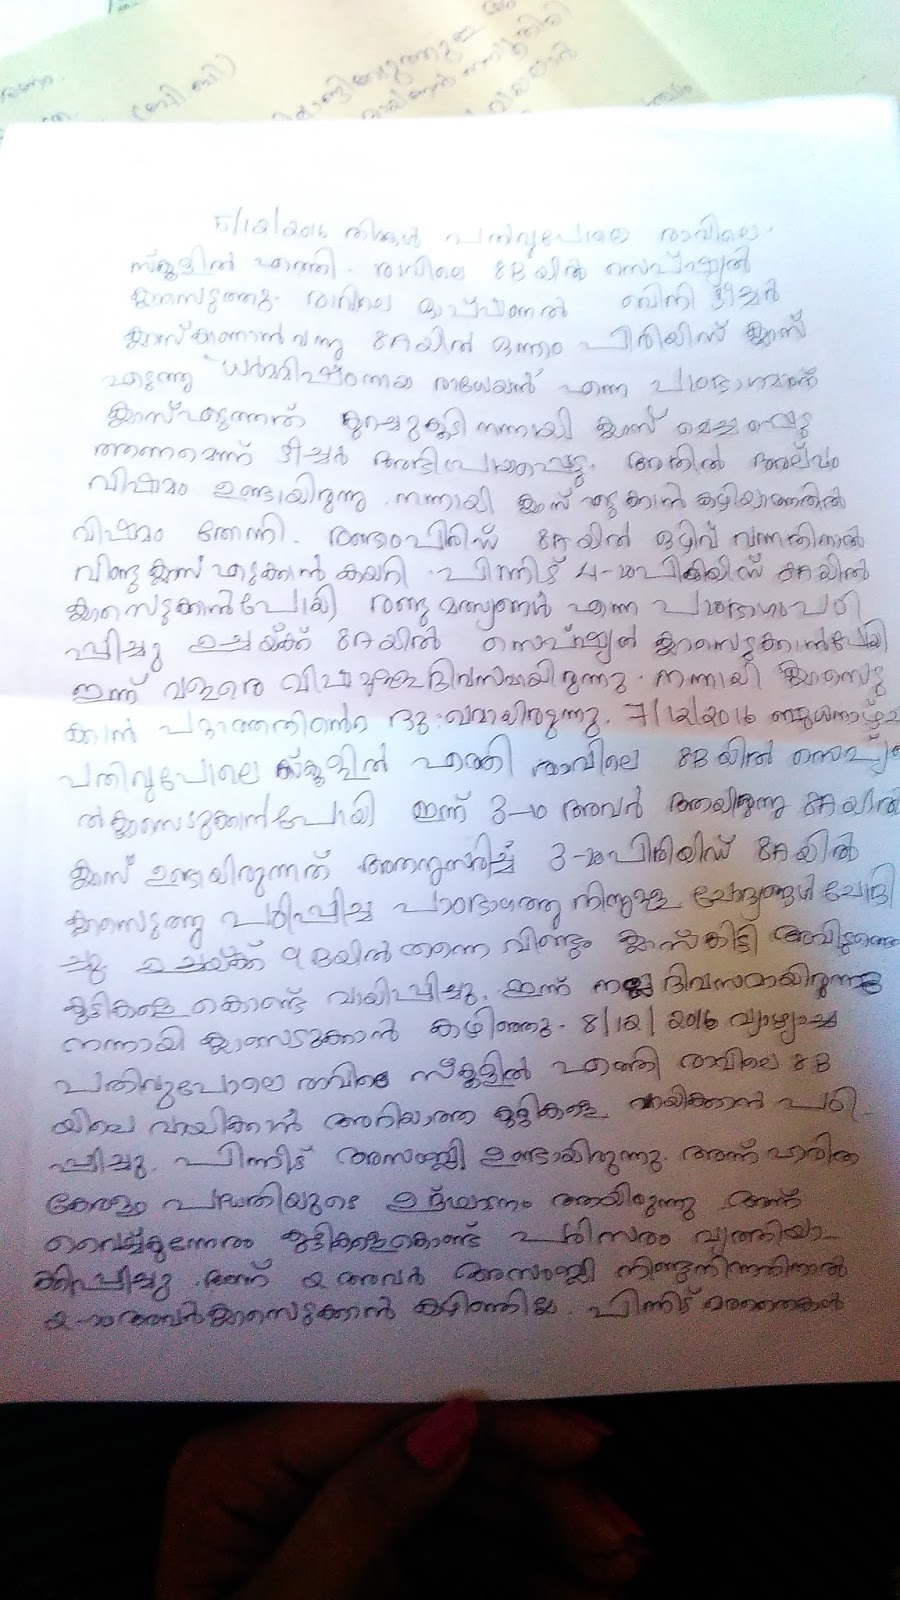 5/12/2016 തിങ്കൾ പതിവുപോലെ രാവിലെ
സ്കൂളിൽ എത്തി. രാവിലെ 8B യിൽ സെപ്ഷ്യൽ
ക്ലാസെടുത്തു. രാവിലെ ഓപ്ഷണൽ ബിനി ടീച്ചർ
ക്ലാസ് കാണാൻ വന്നു 8A യിൽ ഒന്നാം പിരിയിഡ് ക്ലാസ്
എടുത്തു എന്ന പാഠഭാഗമാണ്
ക്ലാസ് എടുത്തത് കുറച്ചുകൂടി നന്നായി ക്ലാസ് മെച്ചപ്പെടു
ത്തണമെന്ന് ടീച്ചർ അഭിപ്രായപ്പെട്ടു. അതിൽ അല്പം
വിഷമം ഉണ്ടായിരുന്നു. നന്നായി ക്ലാസ് എടുക്കാൻ കഴിയാത്തതിൽ
വിഷമം തോന്നി. രണ്ടാംപിരിഡ് 8A യിൽ ഒഴിവ് വന്നതിനാൽ
വീണ്ടു ക്ലാസ് എടുക്കാൻ കയറി. പിന്നീട് 4-ാം പിരിയിഡ് 8A യിൽ
ക്ലാസെടുക്കാൻ പോയി രണ്ടു മത്സ്യങ്ങൾ എന്ന പാഠഭാഗം പഠി
പ്പിച്ചു ഉച്ചയ്ക്ക് 8A യിൽ സെപ്ഷ്യൽ ക്ലാസെടുക്കാൻ പോയി
ഇന്ന് വളരെ വിഷമമുള്ള ദിവസമായിരുന്നു. നന്നായി ക്ലാസെടു
ക്കാൻ പറ്റാത്തതിന്റെ ദു:ഖമായിരുന്നു. 7/12/2016 ബുധനാഴ്ച
പതിവുപോലെ സ്കൂളിൽ എത്തി രാവിലെ 8B യിൽ സെപ്ഷ്യ
ൽ ക്ലാസെടുക്കാൻ പോയി ഇന്ന് 3-ാ അവർ ആയിരുന്നു 8A യിൽ
ക്ലാസ് ഉണ്ടായിരുന്നത് അതനുസരിച്ച് 3-ാം പിരിയിഡ് 8A യിൽ
ക്ലാസെടുത്തു പഠിപ്പിച്ച പാഠഭാഗത്തു നിന്നുള്ള ചോദ്യങ്ങൾ ചോദി
ച്ചു. ഉച്ചയ്ക്ക് യിൽ തന്നെ വീണ്ടും ക്ലാസ് കിട്ടി
കുട്ടികളെ കൊണ്ട് വായിപ്പിച്ചു. ഇന്ന് നല്ല ദിവസമായിരുന്നു
നന്നായി ക്ലാസെടുക്കാൻ കഴിഞ്ഞു. 8/12/2016 വ്യാഴാച്ച
പതിവുപോലെ രാവിലെ സ്കൂളിൽ എത്തി രാവിലെ 8B
യിലെ വായിക്കാൻ അറിയാത്ത കുട്ടികളെ വായിക്കാൻ പഠി
പ്പിച്ചു. പിന്നീട് അസംബ്ലി ഉണ്ടായിരുന്നു. അന്ന് ഹരിത
കേരളം പദ്ധതിയുടെ ഉദ്ഘാടനം ആയിരുന്നു അന്ന്
വൈകുന്നേരം കുട്ടികളെകൊണ്ട് പരിസരം വൃത്തിയാ
ക്കിപ്പിച്ചു. അന്ന് അവർ അസംബ്ലി നീണ്ടുനിന്നതിനാൽ
അവർ ക്ലാസെടുക്കാൻ കഴിഞ്ഞില്ല. പിന്നീട്